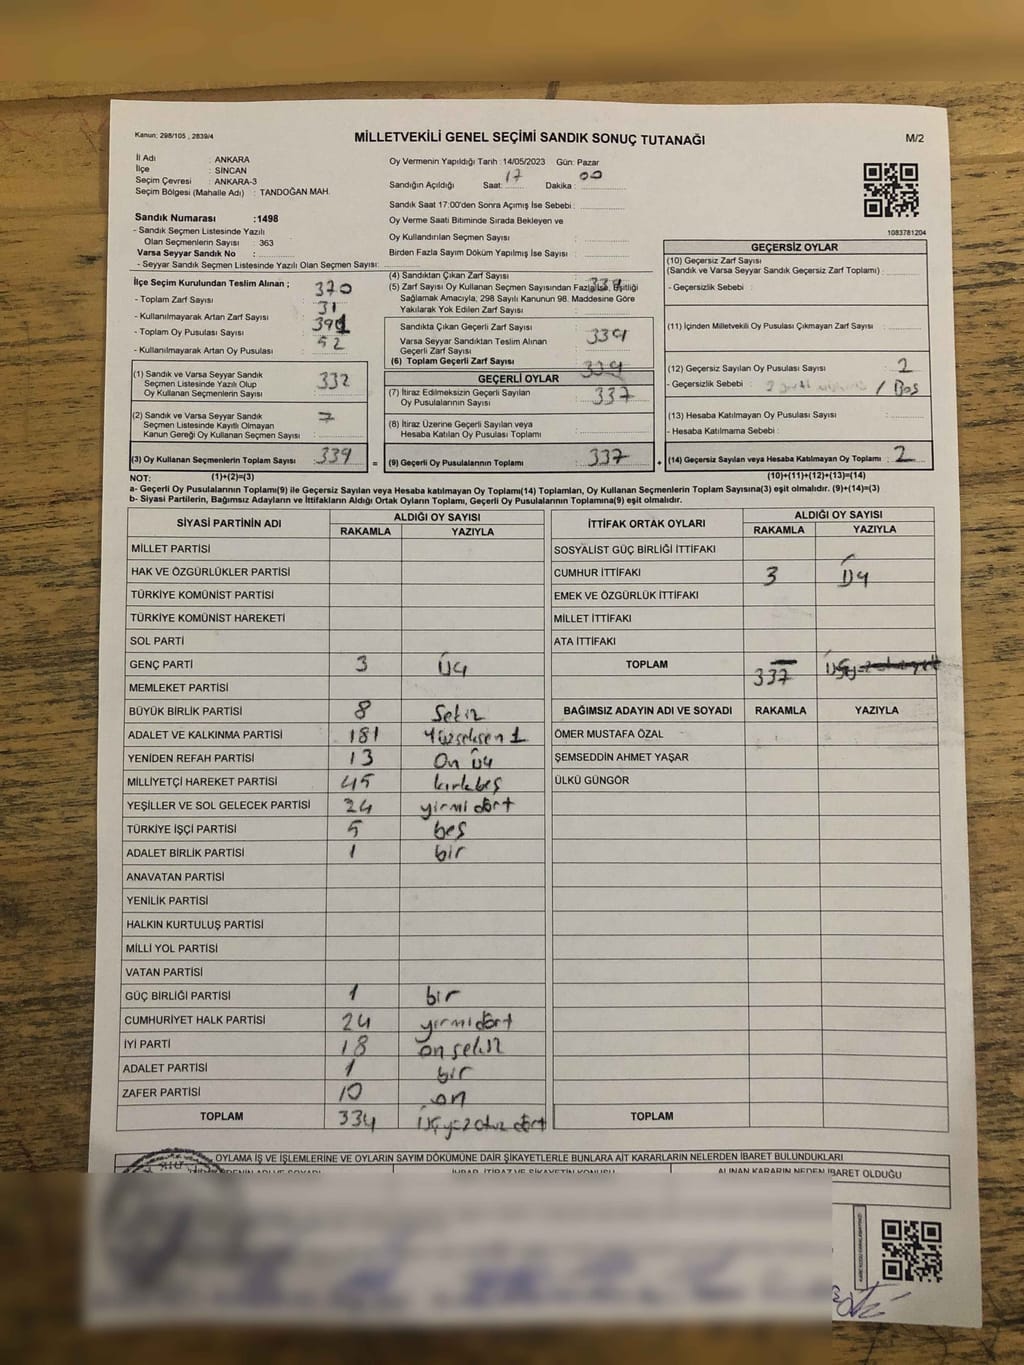 Kanun; 298/105 , 2839/4
MİLLETVEKİLİ GENEL SEÇİMİ SANDIK SONUÇ TUTANAĞI
M/2
İl Adı : ANKARA
İlçe : SİNCAN
Seçim Çevresi : ANKARA-3
Seçim Bölgesi (Mahalle Adı) : TANDOĞAN MAH.
Sandık Numarası :1498
- Sandık Seçmen Listesinde Yazılı
Olan Seçmenlerin Sayısı : 363
Varsa Seyyar Sandık No :
- Seyyar Sandık Seçmen Listesinde Yazılı Olan Seçmen Sayısı:
Oy Vermenin Yapıldığı Tarih :14/05/2023 Gün: Pazar
Sandığın Açıldığı Saat: 17 Dakika : 00
Sandık Saat 17:00'den Sonra Açılmış İse Sebebi :
Oy Verme Saati Bitiminde Sırada Bekleyen ve
Oy Kullandırılan Seçmen Sayısı :
Birden Fazla Sayım Döküm Yapılmış İse Sayısı :
1083781204
İlçe Seçim Kurulundan Teslim Alınan ;
- Toplam Zarf Sayısı : 370
- Kullanılmayarak Artan Zarf Sayısı : 31
- Toplam Oy Pusulası Sayısı :
- Kullanılmayarak Artan Oy Pusulası : 52
(1) Sandık ve Varsa Seyyar Sandık
Seçmen Listesinde Yazılı Olup
Oy Kullanan Seçmenlerin Sayısı : 332
(2) Sandık ve Varsa Seyyar Sandık
Seçmen Listesinde Kayıtlı Olmayan
Kanun Gereği Oy Kullanan Seçmen Sayısı : 7
(3) Oy Kullanan Seçmenlerin Toplam Sayısı 339
(4) Sandıktan Çıkan Zarf Sayısı : 339
(5) Zarf Sayısı Oy Kullanan Seçmen Sayısından Fazla İse, Eşitliği
Sağlamak Amacıyla, 298 Sayılı Kanunun 98. Maddesine Göre
Yakılarak Yok Edilen Zarf Sayısı :
Sandıkta Çıkan Geçerli Zarf Sayısı : 339
Varsa Seyyar Sandıktan Teslim Alınan
Geçerli Zarf Sayısı :
(6) Toplam Geçerli Zarf Sayısı : 339
GEÇERLİ OYLAR
(7) İtiraz Edilmeksizin Geçerli Sayılan
Oy Pusulalarının Sayısı : 337
(8) İtiraz Üzerine Geçerli Sayılan veya
Hesaba Katılan Oy Pusulası Toplamı :
= (9) Geçerli Oy Pusulalarının Toplamı 337 +
GEÇERSİZ OYLAR
(10) Geçersiz Zarf Sayısı
(Sandık ve Varsa Seyyar Sandık Geçersiz Zarf Toplamı) :
- Geçersizlik Sebebi :
(11) İçinden Milletvekili Oy Pusulası Çıkmayan Zarf Sayısı :
(12) Geçersiz Sayılan Oy Pusulası Sayısı : 2
- Geçersizlik Sebebi : / Boş
(13) Hesaba Katılmayan Oy Pusulası Sayısı :
- Hesaba Katılmama Sebebi :
(14) Geçersiz Sayılan veya Hesaba Katılmayan Oy Toplamı : 2
NOT: (1)+(2)=(3) (10)+(11)+(12)+(13)=(14)
a- Geçerli Oy Pusulalarının Toplamı(9) ile Geçersiz Sayılan veya Hesaba katılmayan Oy Toplamı(14) Toplamları, Oy Kullanan Seçmenlerin Toplam Sayısına(3) eşit olmalıdır. (9)+(14)=(3)
b- Siyasi Partilerin, Bağımsız Adayların ve İttifakların Aldığı Ortak Oyların Toplamı, Geçerli Oy Pusulalarının Toplamına(9) eşit olmalıdır.
SİYASİ PARTİNİN ADI ALDIĞI OY SAYISI
RAKAMLA YAZIYLA
MİLLET PARTİSİ
HAK VE ÖZGÜRLÜKLER PARTİSİ
TÜRKİYE KOMÜNİST PARTİSİ
TÜRKİYE KOMÜNİST HAREKETİ
SOL PARTİ
GENÇ PARTİ 3 Üç
MEMLEKET PARTİSİ
BÜYÜK BİRLİK PARTİSİ 8 Sekiz
ADALET VE KALKINMA PARTİSİ 181 Yüzseksen 1
YENİDEN REFAH PARTİSİ 13 On üç
MİLLİYETÇİ HAREKET PARTİSİ 45 kırkbeş
YEŞİLLER VE SOL GELECEK PARTİSİ 24 yirmi dört
TÜRKİYE İŞÇİ PARTİSİ 5 beş
ADALET BİRLİK PARTİSİ 1 bir
ANAVATAN PARTİSİ
YENİLİK PARTİSİ
HALKIN KURTULUŞ PARTİSİ
MİLLİ YOL PARTİSİ
VATAN PARTİSİ
GÜÇ BİRLİĞİ PARTİSİ 1 bir
CUMHURİYET HALK PARTİSİ 24 yirmi dört
İYİ PARTİ 18 on sekiz
ADALET PARTİSİ 1 bir
ZAFER PARTİSİ 10 on
TOPLAM 334 üçyüz otuz dört
İTTİFAK ORTAK OYLARI ALDIĞI OY SAYISI
RAKAMLA YAZIYLA
SOSYALİST GÜÇ BİRLİĞİ İTTİFAKI
CUMHUR İTTİFAKI 3 Üç
EMEK VE ÖZGÜRLÜK İTTİFAKI
MİLLET İTTİFAKI
ATA İTTİFAKI
TOPLAM 337
BAĞIMSIZ ADAYIN ADI VE SOYADI RAKAMLA YAZIYLA
ÖMER MUSTAFA ÖZAL
ŞEMSEDDİN AHMET YAŞAR
ÜLKÜ GÜNGÖR
TOPLAM
OYLAMA İŞ VE İŞLEMLERİNE VE OYLARIN SAYIM DÖKÜMÜNE DAİR ŞİKAYETLERLE BUNLARA AİT KARARLARIN NELERDEN İBARET BULUNDUKLARI
İHBAR, İTİRAZ VE ŞİKAYETİN KONUSU ALINAN KARARIN NEDEN İBARET OLDUĞU